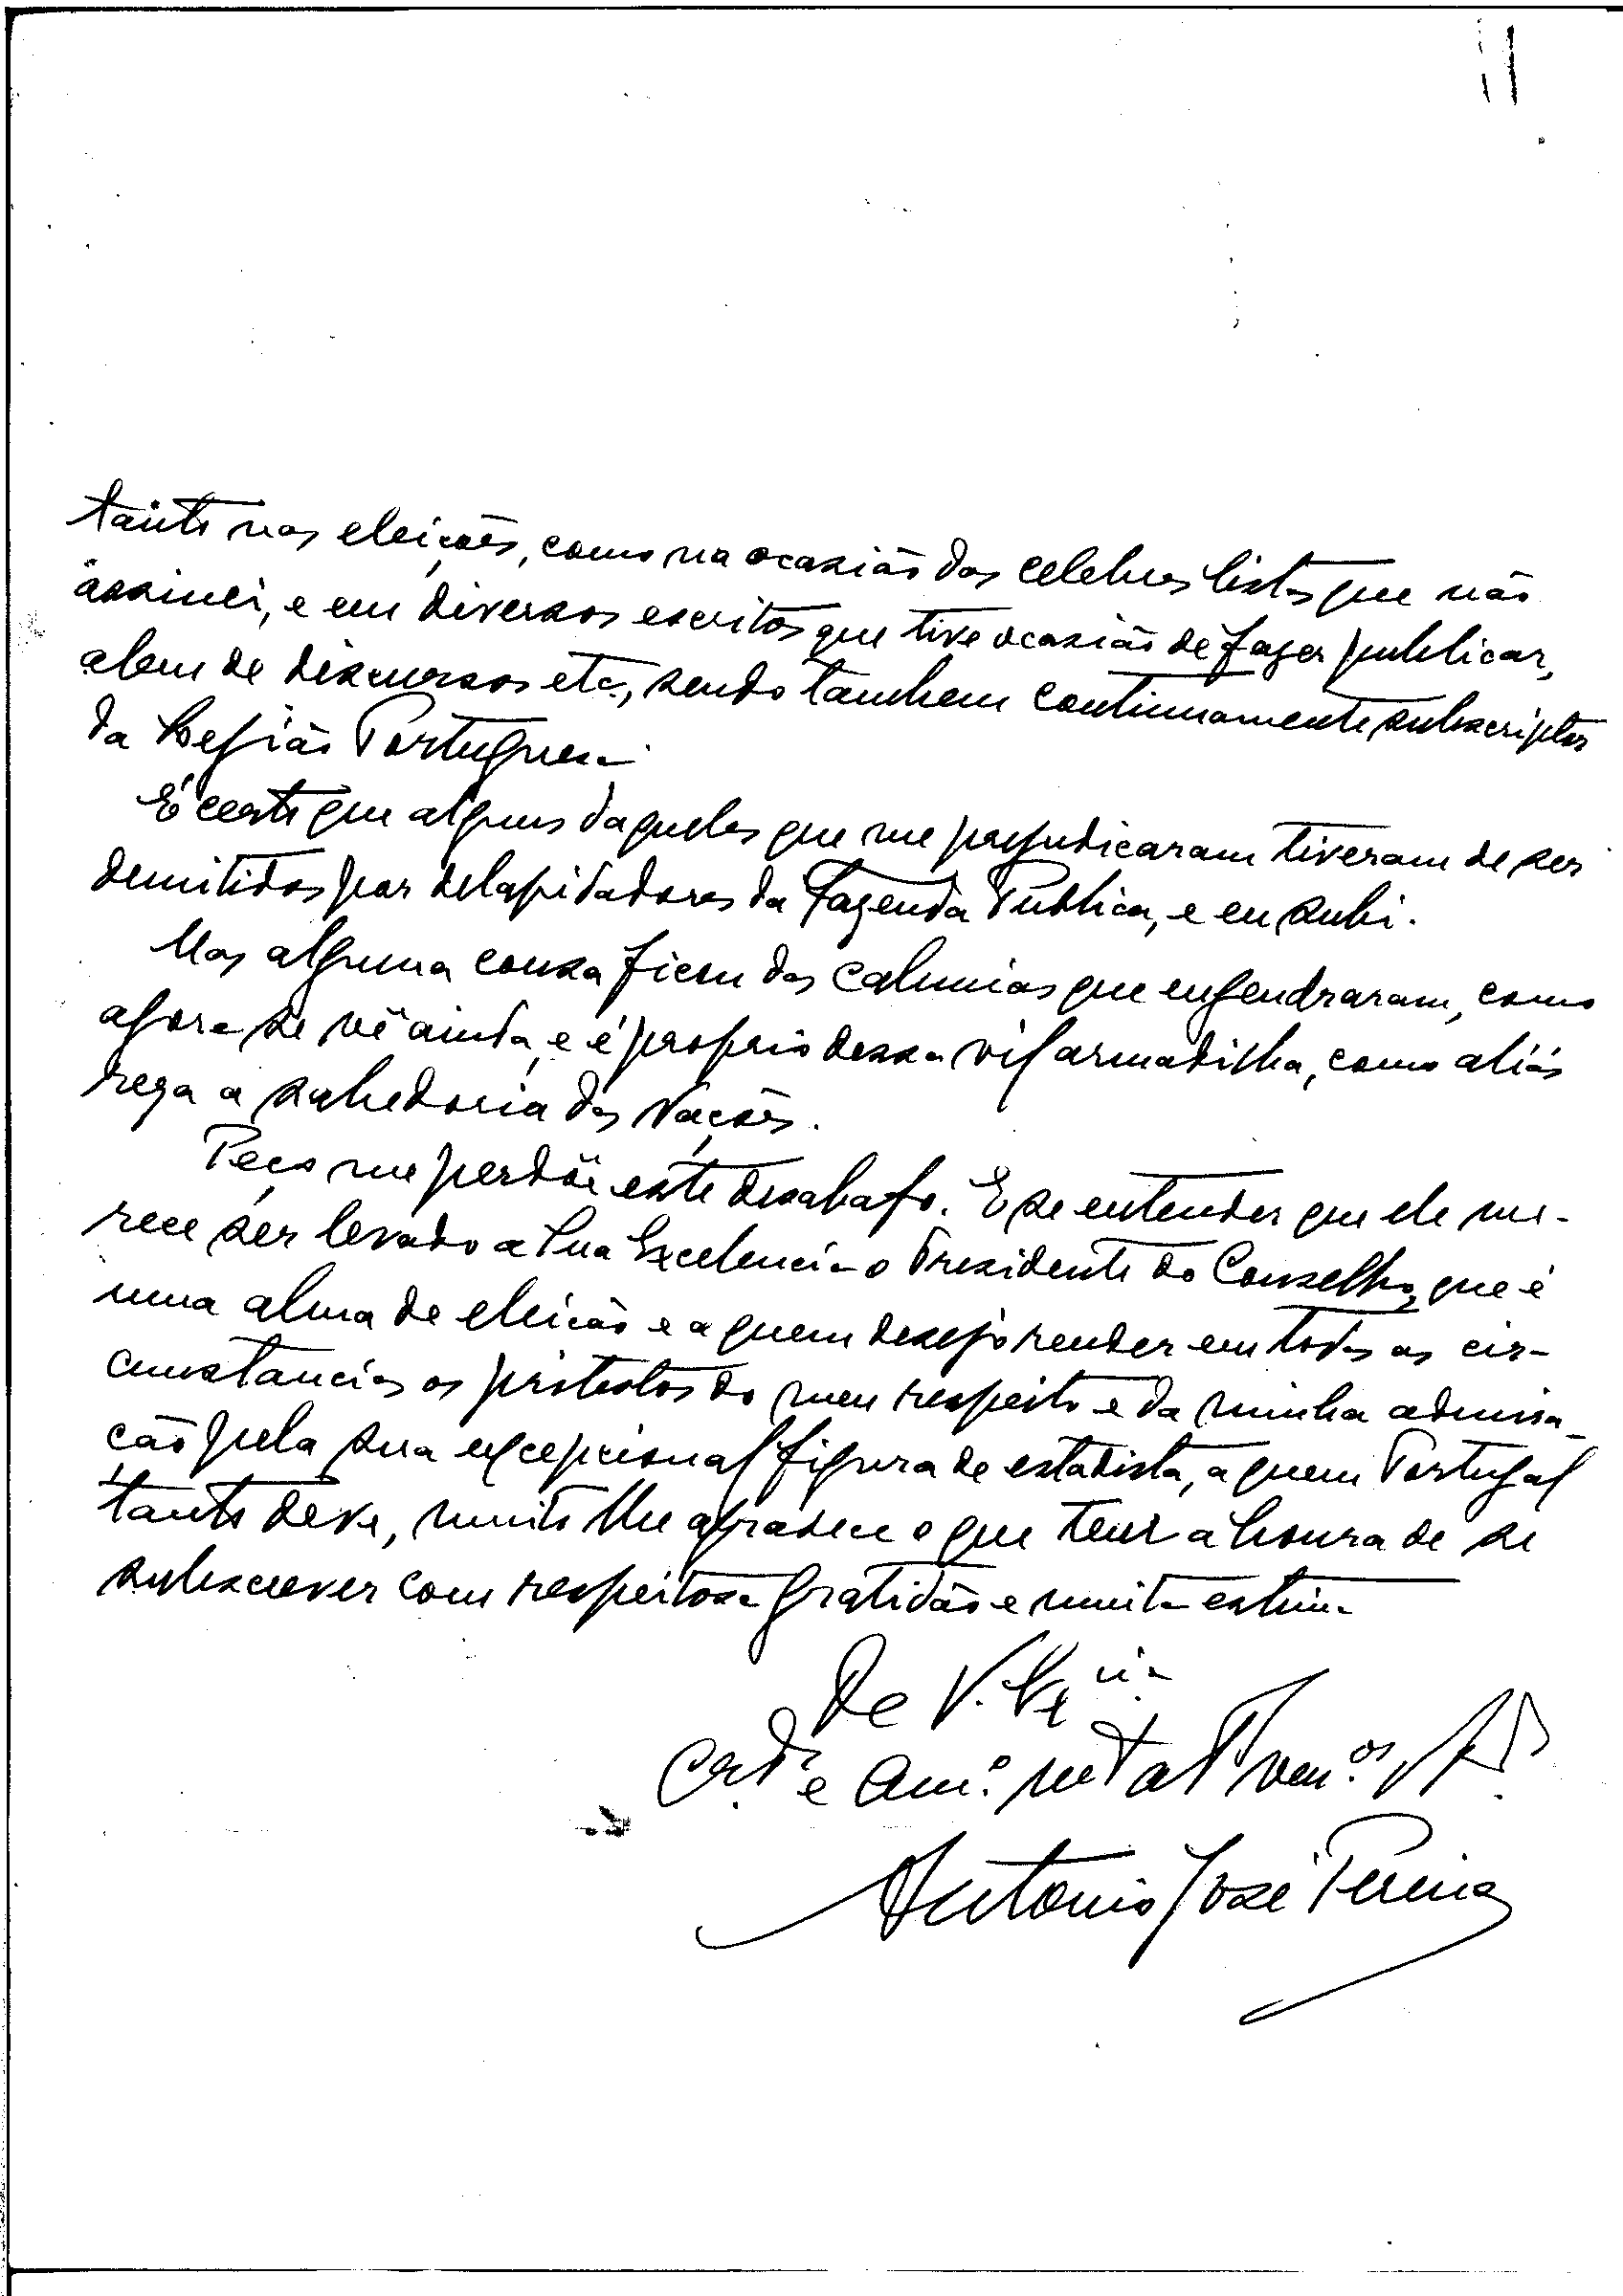 tanto nas eleições, como na ocasião das celebres listas que não
assinei, e em diversos escritos que tive ocasião de fazer publicar,
alem de discursos etc., sendo tambem continuamente subscriptor
da Legião Portuguesa.
É certo que alguns daqueles que me prejudicaram tiveram de ser
demitidos por delapidadores da Fazenda Publica, e eu subi.
Mas alguma cousa ficou das calunias que engendraram, como
agora se vê ainda, e é proprio dessa vil armadilha, como aliás
reza a sabedoria das Nações.
Peço me perdôe este desabafo. E se entender que ele me-
rece ser levado a Sua Excelencia o Presidente do Conselho, que é
uma alma de eleição e a quem desejo render em todas as cir-
cunstancias os protestos do meu respeito e da minha admira-
ção pela sua excepcional figura de estadista, a quem Portugal
tanto deve, muito lhe agradece o que tem a honra de se
subscrever com respeitosa gratidão e muita estima
De V. Ex.cia
e Am.º
Antonio José Pereira